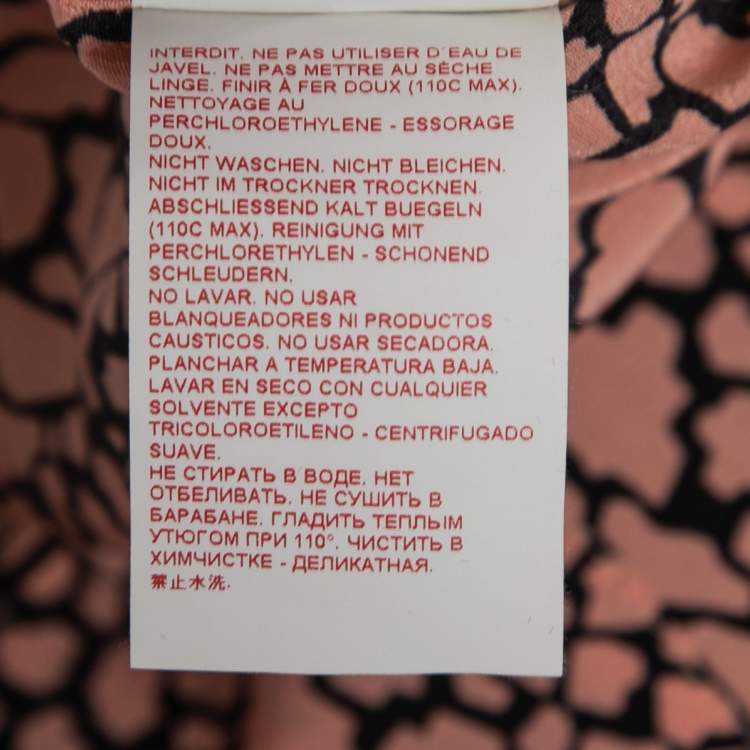 INTERDIT. NE PAS UTILISER D'EAU DE
JAVEL. NE PAS METTRE AU SÈCHE
LINGE. FINIR À FER DOUX (110C MAX).
NETTOYAGE AU
PERCHLOROETHYLENE - ESSORAGE
DOUX.
NICHT WASCHEN. NICHT BLEICHEN.
NICHT IM TROCKNER TROCKNEN.
ABSCHLIESSEND KALT BUEGELN
(110C MAX). REINIGUNG MIT
PERCHLORETHYLEN - SCHONEND
SCHLEUDERN.
NO LAVAR. NO USAR
BLANQUEADORES NI PRODUCTOS
CAUSTICOS. NO USAR SECADORA.
PLANCHAR A TEMPERATURA BAJA.
LAVAR EN SECO CON CUALQUIER
SOLVENTE EXCEPTO
TRICOLOROETILENO - CENTRIFUGADO
SUAVE.
НЕ СТИРАТЬ В ВОДЕ. НЕТ
ОТБЕЛИВАТЬ. НЕ СУШИТЬ В
БАРАБАНЕ. ГЛАДИТЬ ТЕПЛЫМ
УТЮГОМ ПРИ 110°. ЧИСТИТЬ В
ХИМЧИСТКЕ - ДЕЛИКАТНАЯ.
禁止水洗.